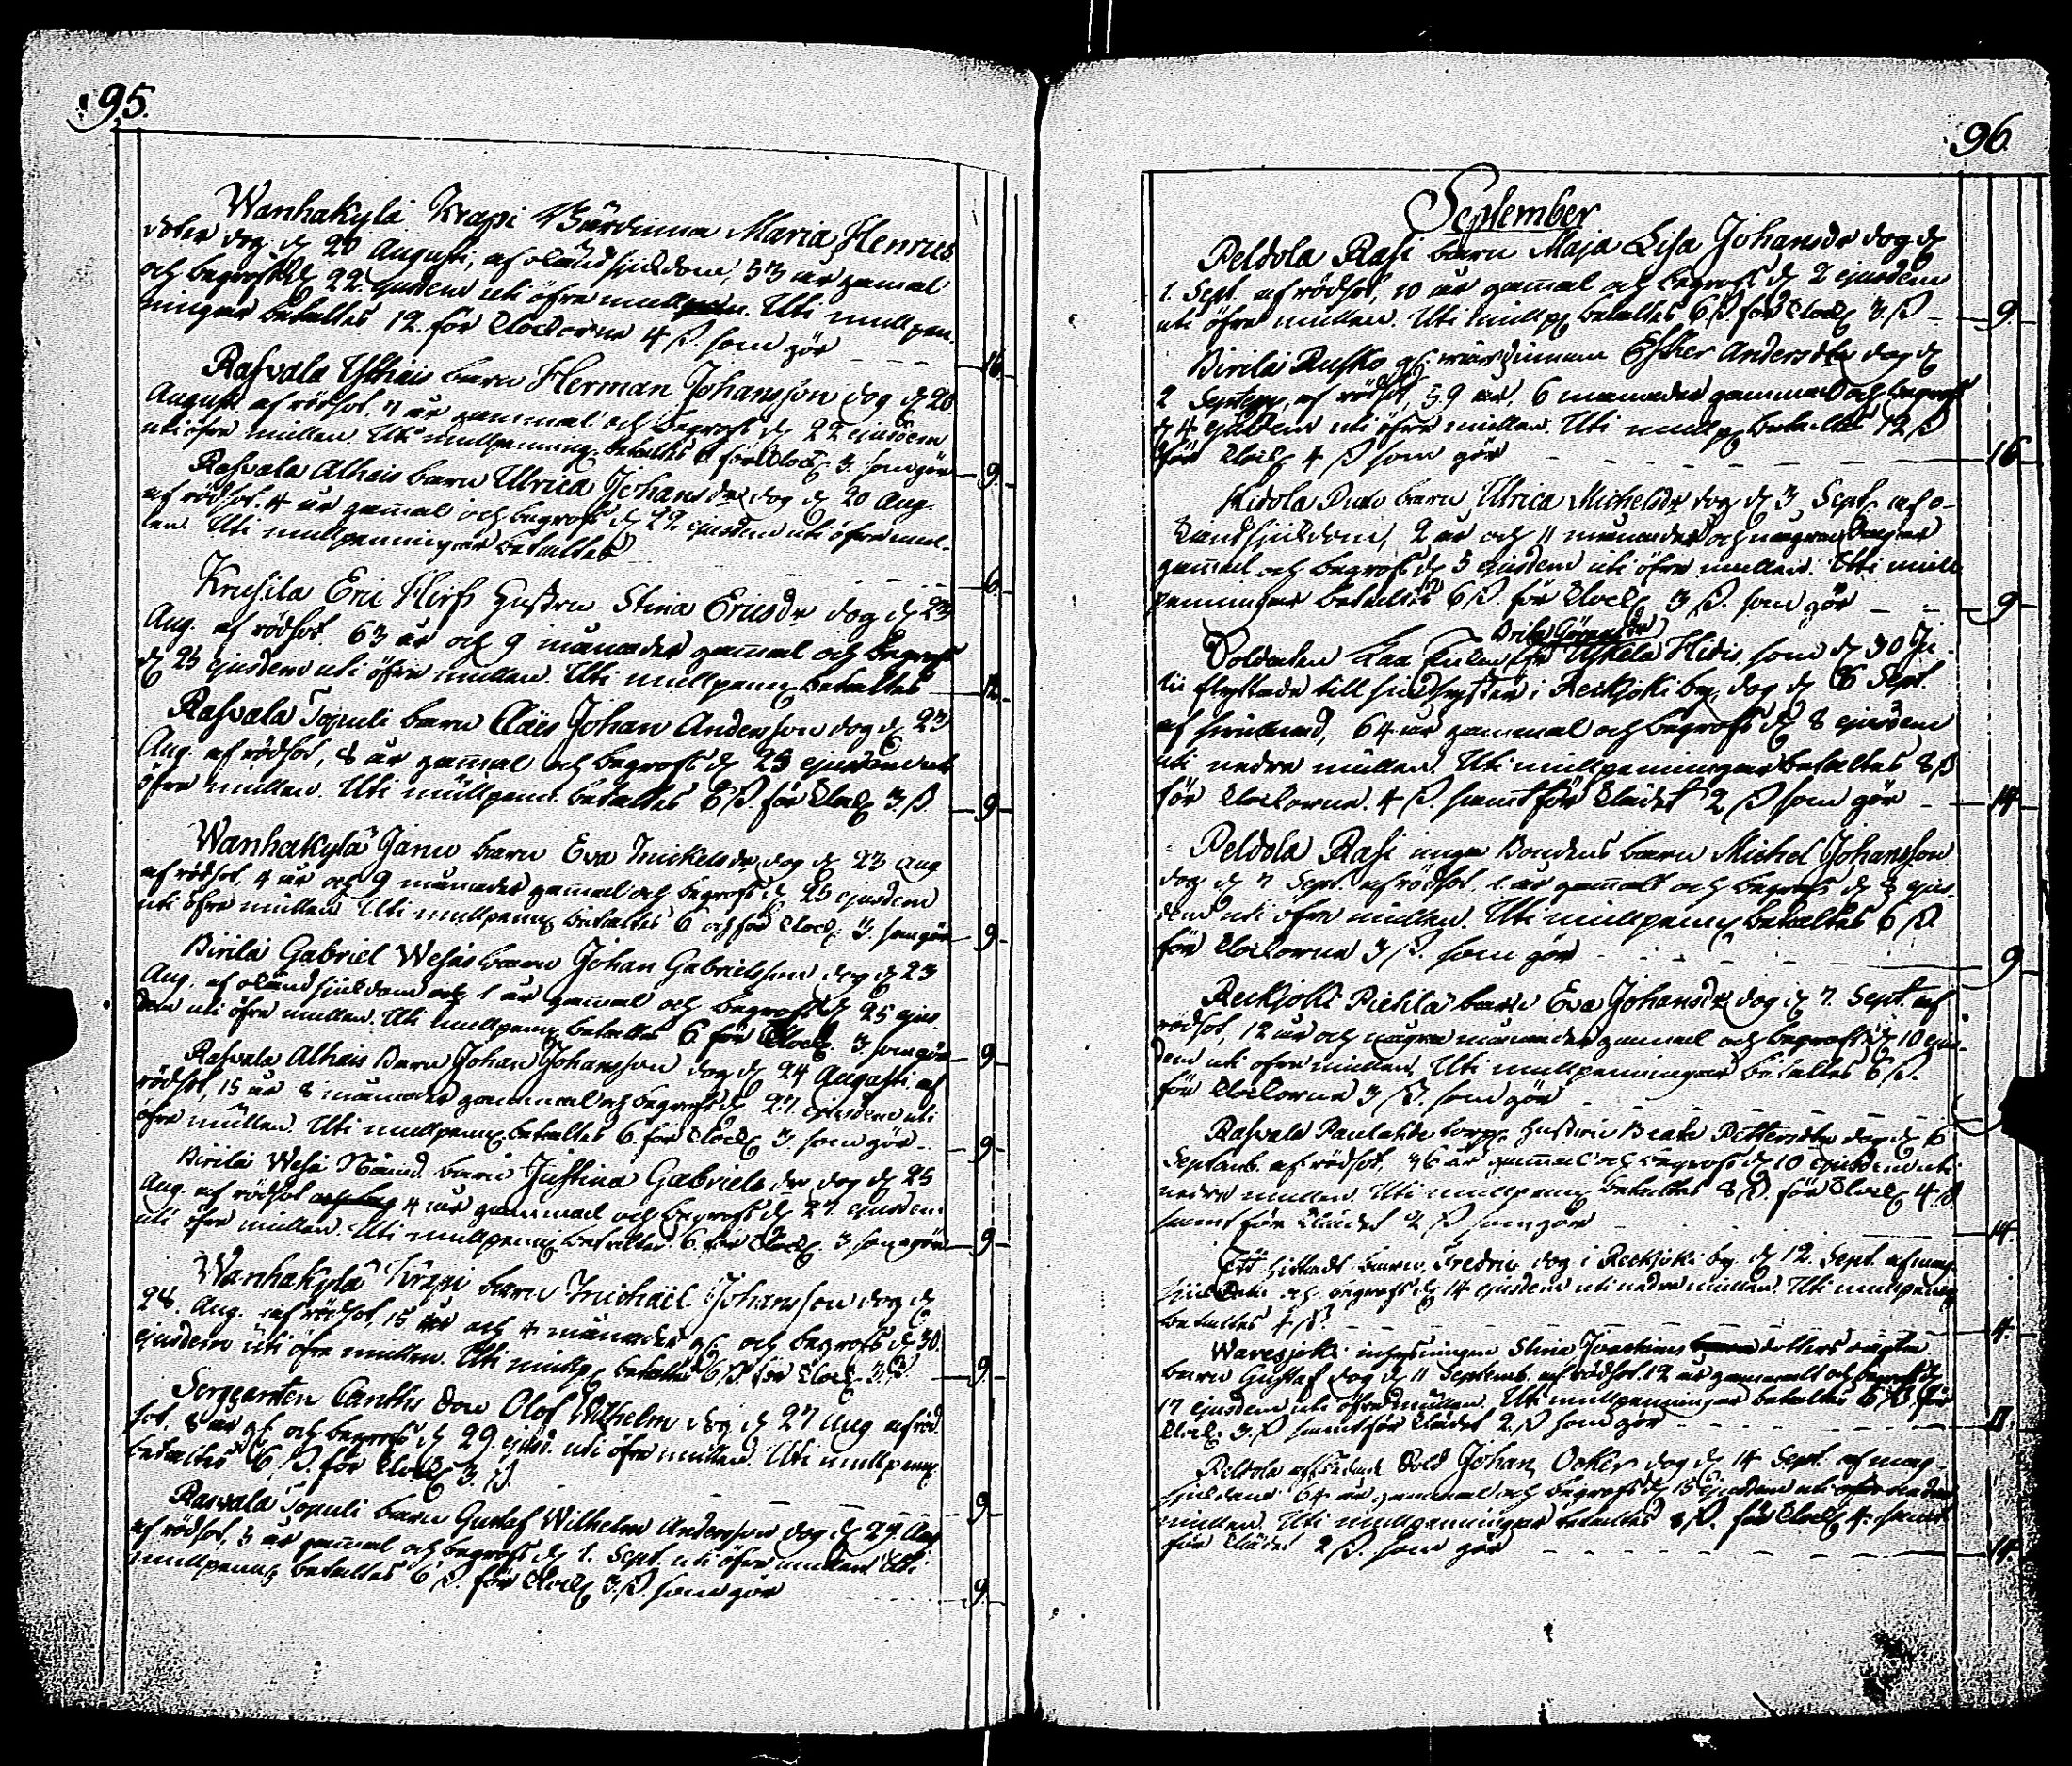 95.
Wanhakylä Krapi Värdinna Maria Henrics
doter dog d 20 Augusti, af oländ sjukdom, 53 år gamal
och begrofs d 22. ejusdem uti öfre mullen. Uti mullpen-
ningar betaltes 12. för Clockorne 4 ß som gör 16.
Rasvala Ylhais barn Herman Johansson dog d 20
Augusti af rödsot, 11 år gammal och begrofs d 22 ejusdem
uti öfre mullen. Uti mullpenning. betaltes 6 för Clock. 3. som gör 9.
Rasvala Alhais barn Ulrica Johansdr dog d 20 Aug.
af rödsot. 4 år gamal och begrofs d 22 ejusdem uti öfre mul-
len. Uti mullpenningar betaltes 6.
Krusila Eric Hirfs hustru Stina Ericsdr dog d 23
Aug. af rödsot 63 år och 9 månader gamal och begrofs
d 25 ejusdem uti öfre mullen. Uti mullpenn betaltes 12.
Rasvala Topuli barn Claës Johan Andersson dog d 23
Aug. af rödsot, 8 år gamal och begrofs d 25 ejusdem uti
öfre mullen. Uti mullpenn. betaltes 6 ß. för Clock 3. ß 9
Wanhakylä Janu barn Eva Mickelsdr dog d 23 Aug
af rödsot, 4 år och 9 månader gamal och begrofs d 25 ejusdem
uti öfre mullen Uti mullpenn betaltes 6 och för Clock. 3. som gör 9.
Pirilä Gabriel Wesas barn Johan Gabrielsson dog d 23
Aug. af oländ sjukdom 1 år gamal och begrofs d 25 ejus-
dem uti öfre mullen. Uti mullpenn betaltes 6 för Clock 3. som gör 9.
Rasvala Alhais Barn Johan Johansson dog d 24 Augusti af
rödsot, 15 år 8 månader gammal och begrofs d 27. ejusdem uti
öfre mullen. Uti mullpenn. betaltes 6. for Clock 3. som gör 9
Pirilä Wesa Nämd. barn Justina Gabriels dr dog d 25
Aug. af rödsot 4 år gammal och begrofs d 27. ejusdem
uti öfre mullen. Uti mullpenn betaltes 6. för Clock. 3. som gör 9
Wanhakylä Krapi barn Michaël Johansson dog d
28. Aug. af rödsot, 15 år och 4 månader gl och begrofs d 30.
ejusdem uti öfre mullen. Uti mullp betaltes 6 ß. för Clock 3. ß 9.
Sergeanten Canths Son Olof Wilhelm dog d 27 Aug af röd-
sot, 8 år gl. och begrofs d 29. ejusd. uti öfre mullen. Uti mullpenn
betaltes 6 ß. för Clock 3. ß. 9
Rasvala Topuli barn Gustaf Wilhelm Andersson dog d 29. Aug
af rödsot, 3 år gamal och begrofs d 1. Sept. uti öfre mullen Uti
mullpenn betaltes 6 ß. för Clock 3. ß. som gör 9.
96.
September
Peldola Rasi barn Maja Lisa Johansdr dog d
1. Sept. af rödsot, 10 år gamal och begrofs d 2 ejusdem
uti öfre mullen. Uti mullp betaltes 6 ß. för Clock 3. ß 9.
Pirilä Rusko gl. wärdinnan Esther Andersdtr dog d
2 Septemb, af rödsot, 59 år, 6 månader gammal och begrofs
d 4 ejusdem uti öfre mullen. Uti mullp betaltes 12 ß
för Clock 4 ß som gör 16
Hidola barn Ulrica Michelsdr dog d 3 Sept af o-
länd sjukdom, 2 år och 11 månader och några dagar
gamal och begrofs d 5 ejusdem uti öfre mullen. Uti mull-
penningar betaltes 6 ß. för Clock 3 ß. som gör 9
Brita Göransdr
Soldaten Enka fr Uskela Hidis som d 30 Ju-
lii flyttade till sin syster i Reckjoki by dog d 6 Sept.
af 64 år gammal och begrofs d 8 ejusdem
uti nedre mullen. Uti mullpenningar betaltes 8 ß
för Clockorne. 4 ß. samt för Klädet 2 ß som gör 14
Peldola Rasi unga Bondens barn Michel Johansson
dog d 7 Sept. af rödsot. 1. år gamalt och begrofs d 8 ejus-
dem uti öfre mullen. Uti mullpenn betaltes 6 ß.
för Clockorne 3 ß. som gör 9
Reckjoki Pietilä barn Eva Johansdr dog d 7. Sept. af
rödsot, 12 år och några månader gamal och begrofs d 10 ejus-
dem uti öfre mullen. Uti mullpenningar betaltes 6 ß.
för Clockorne 3 ß. som gör
Rasvala torp. hustru Beata Pettersdtr dog d 6
Septemb. af rödsot, 36 år gammal och begrofs d 10 ejusdem uti
nedre mullen. Uti mullpenn betaltes 8 ß. för Clock 4 ß.
samt för Klädet 2 ß som gör 14.
Ett hittadt barn, Fredric dog i Reckjoki by d 12. Sept. af mag-
och begrofs d 14 ejusdem uti nedre mullen. Uti mullpenn
betaltes 4 ß. 4.
Waresjoki inhysningen Stina Joachims dotters oägta
barn Gustaf dog d 11 Septemb. af rödsot. 12 år gammalt och begrofs d
17 ejusdem uti öfre mullen. Uti mullpenningar betaltes 6 ß. för
Clock. 3. ß samt för Klädet 2. ß som gör 11
Peldola afskedade Sold Johan Ocker dog d 14 Sept. af mag-
sjukdom 64 år gammal och begrofs d 15 ejusdem uti nedre
mullen. Uti mullpenningar betaltes 8 ß. för Clock 4. samt
för Klädet 2 ß. som gör 14.